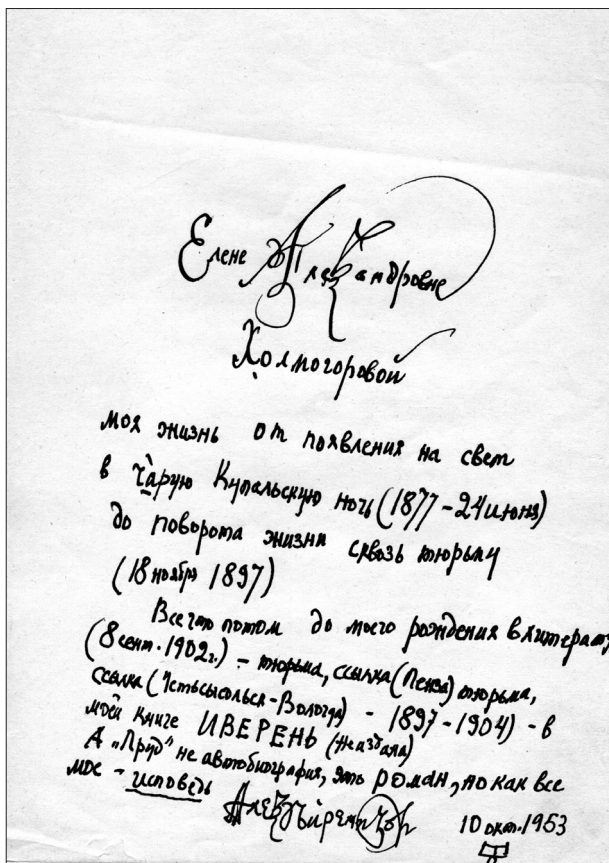 Елене Александровне
Холмогоровой
моя жизнь от появления на свет
в чарую Купальскую ночь (1877 – 24 июня)
до поворота жизни сквозь тюрьму
(18 ноября 1897)
Все что потом до моего рождения в литерат
(8 сент. 1902 г.) – тюрьма, ссылка (Пенза) тюрьма,
ссылка (Устьсысольск – Вологда) – 1897 – 1904) – в
моей книге ИВЕРЕНЬ (не издана)
А „Пруд" не автобиография, это роман, но как все
мое – исповедь
10 окт. 1953